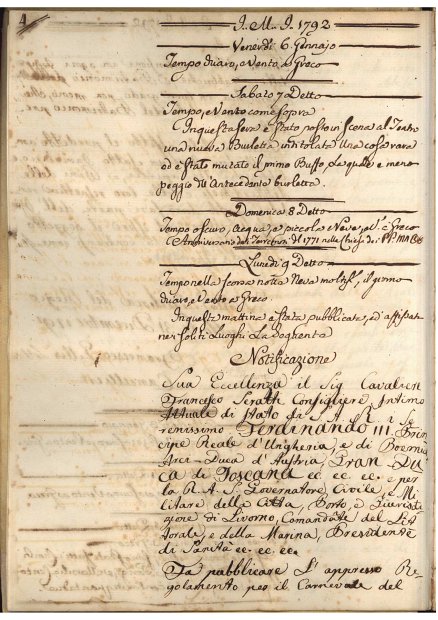 4
I. M. I. 1792
Venerdi 6. Gennajo
Tempo chiaro, e Vento, a Greco
Sabato 7 a Detto
Tempo, e Vento come sopra
In questa sera è stato posto in scena al Teatro
una nuova Burletta intitolata Una cosa rara
ed è stato mutato il primo Buffo, la quale e meno
peggio dell' Antecedente burletta.
Domenica 8 Detto
Tempo oscuro, Acqua, e piccola Neve, e V. è Greco
Anniversario del Terremoto del 1771 nella Chiesa dei PP.
Lunedi 9 Detto
Tempo nella scorsa notte Neve moltiss., il giorno
chiaro, e Vento a Greco
In questa mattina è stata pubblicata, ed affissata
nei soliti Luoghi La Seguente
Notificazione
Sua Eccellenza il Sig Cavalier
Francesco Seratti Consigliere Intimo
Attuale di Stato di S. A. R. il Se
renissimo Ferdinando III. Prin
cipe Reale d'Ungheria, e di Boemia
Arci-Duca d'Austria, Gran Du
ca di Toscana ec. ec. ec. e per
la R. A. S. Governatore Civile, e Mi
litare della Città, Porto, e Giurisdi
zione di Livorno, Comandate del Lit
torale, e della Marina, Presidente
di Sanità ec. ec. ec.
Fa pubblicare l'appresso Re
golamento per il Carnevale del